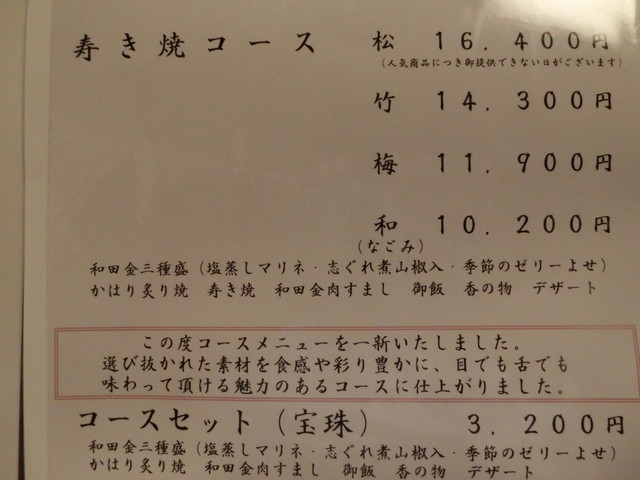 寿き焼コース 松 16.400円
(人気商品につき御提供できない日がございます)
竹 14.300円
梅 11.900円
和 10.200円
(なごみ)
和田金三種盛（塩蒸しマリネ・志ぐれ煮山椒入・季節のゼリーよせ）
かはり炙り焼 寿き焼 和田金肉すまし 御飯 香の物 デザート
この度コースメニューを一新いたしました。
選び抜かれた素材を食感や彩り豊かに、目でも舌でも
味わって頂ける魅力のあるコースに仕上がりました。
コースセット（宝珠） 3.200円
和田金三種盛（塩蒸しマリネ・志ぐれ煮山椒入・季節のゼリーよせ）
かはり炙り焼 和田金肉すまし 御飯 香の物 デザート